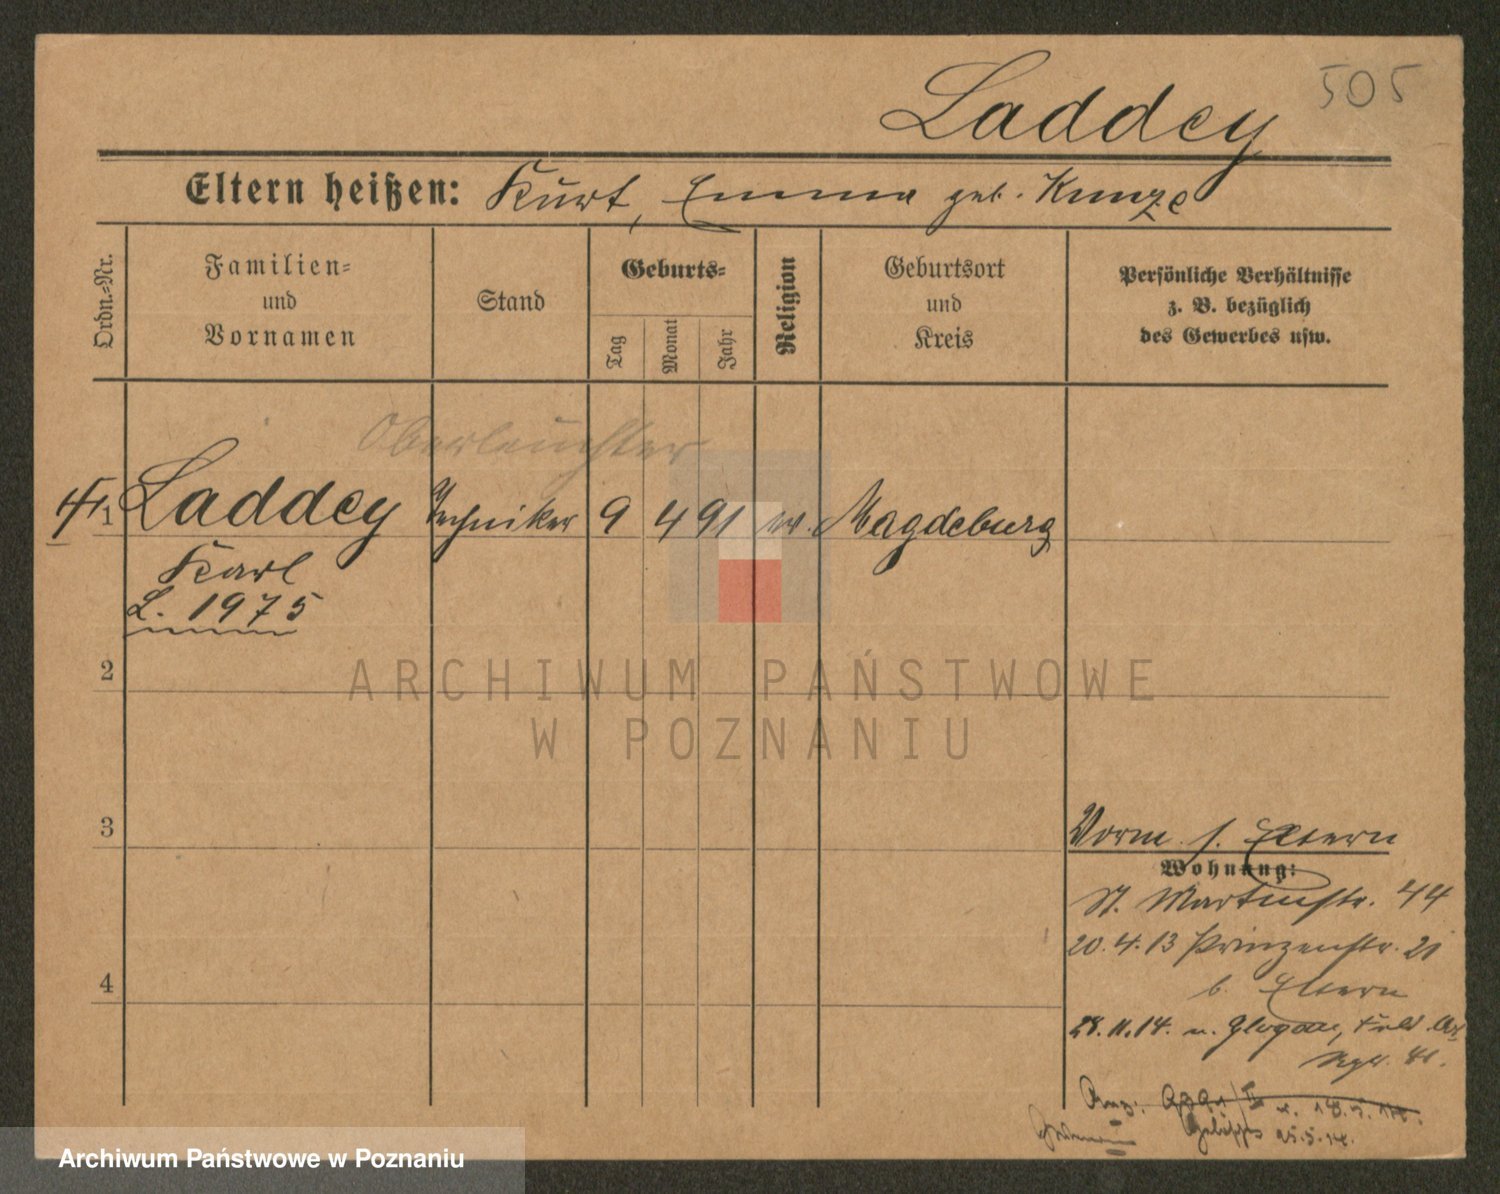 505
Laddey
Eltern heißen: Kurt, Emma geb. Kunze
Ordn.=Nr.
Familien=
und
Vornamen
Stand
Geburts=
Tag
Monat
Jahr
Religion
Geburtsort
und
Kreis
Persönliche Verhältnisse
z. B. bezüglich
des Gewerbes usw.
1 Laddey Techniker 9 4 91 ev. Magdeburg
Karl
L. 1975
2
3
4
Vorm. s. Eltern
Wohnung:
St. Martinstr. 44
20.4.13 Prinzenstr. 21
b. Eltern
28.11.14. n. Glogau, Feld Art
Rgt. 41.
25.5.14.
ARCHIWUM PAŃSTWOWE
W POZNANIU
Archiwum Państwowe w Poznaniu